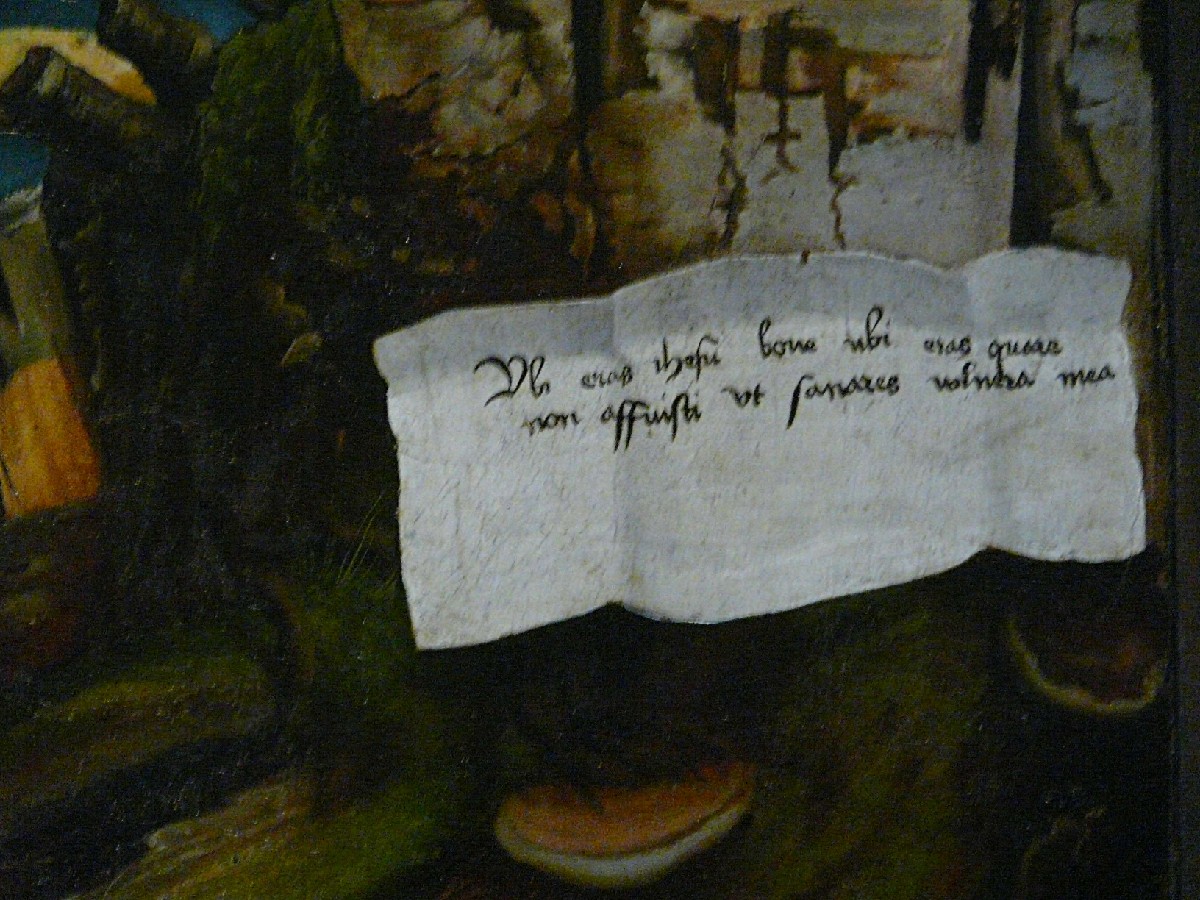 Vbi eras ihesu bone ubi eras quare
non affuisti vt sanares wlnera mea